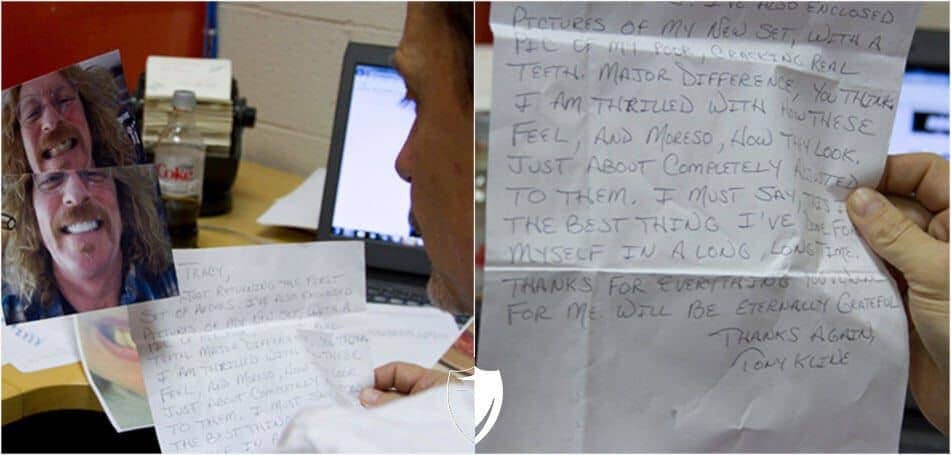 Coke
TRACY,
JUST RETURNING THE FIRST
SET OF I'VE ALSO ENCLOSED
PICTURES OF MY NEW SET, WITH A
PIC OF MY
TEETH. MAJOR
I AM THRILLED WITH THESE
FEEL, AND MORESO, HOW LOOK
JUST ABOUT COMPLETELY
TO THEM. I MUST SAY
THE BEST THING
IN A
I'VE ALSO ENCLOSED
PICTURES OF MY NEW SET, WITH A
PIC OF MY POOR, CRACKING REAL
TEETH. MAJOR DIFFERENCE, YOU THINK
I AM THRILLED WITH HOW THESE
FEEL, AND MORESO, HOW THEY LOOK.
JUST ABOUT COMPLETELY ADJUSTED
TO THEM. I MUST SAY, THIS IS
THE BEST THING I'VE DONE FOR
MYSELF IN A LONG, LONG TIME.
THANKS FOR EVERYTHING YOU'VE
FOR ME. WILL BE ETERNALLY GRATEFUL
THANKS AGAIN,
TONY KLINE